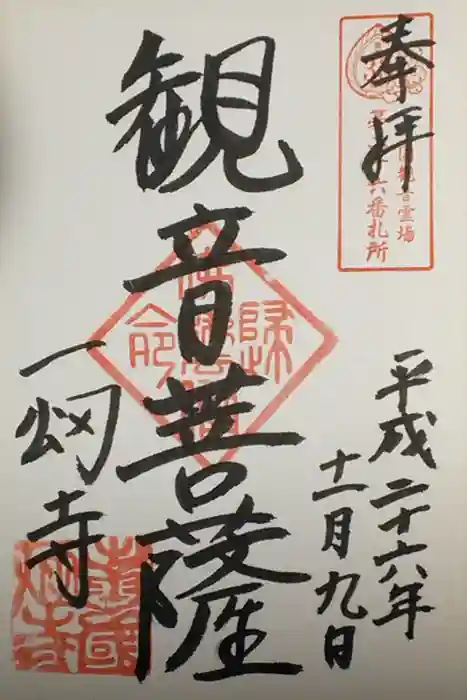 奉拝
国観音霊場
六番札所
平成二十六年
十一月九日
観音菩薩
一畑寺